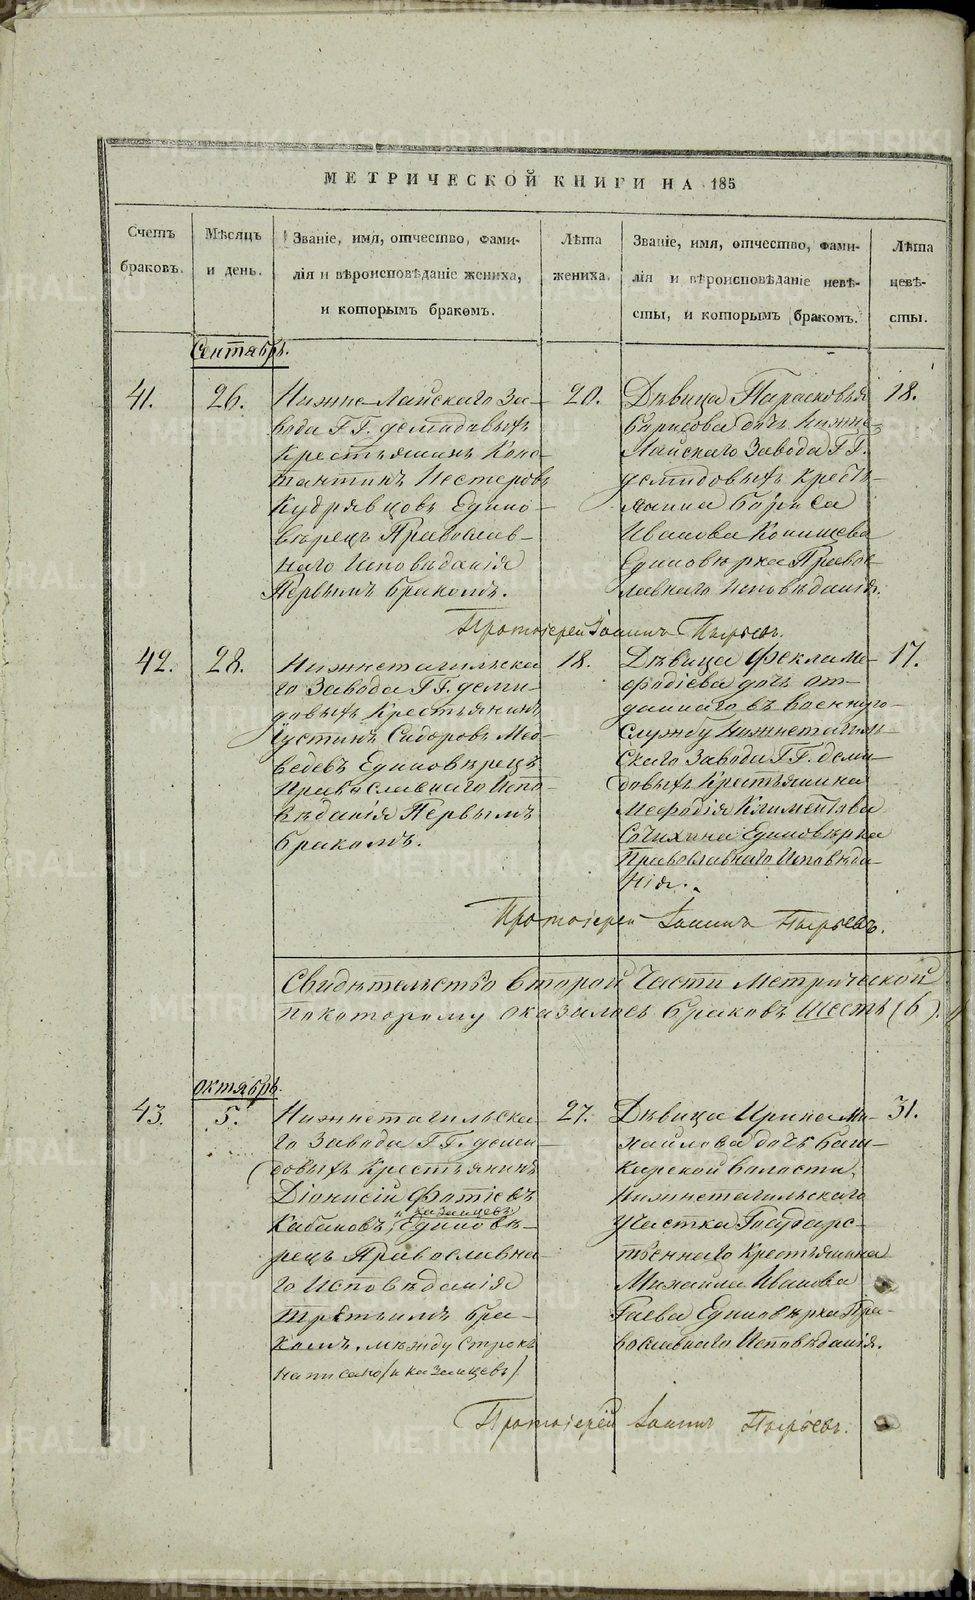 МЕТРИЧЕСКОЙ КНИГИ НА 185
Счетъ
браковъ.
Мѣсяцъ
и день.
Званіе, имя, отчество, фами-
лія и вѣроисповѣданіе жениха,
и которымъ бракомъ.
Лѣта
жениха.
Званіе, имя, отчество, фами-
лія и вѣроисповѣданіе невѣ-
сты, и которымъ бракомъ.
Лѣта
невѣ-
сты.
Сентябрь.
41.
26.
Нижне Лайскаго За-
вода Г.Г. Демидовыхъ
Крестьянинъ Конс-
тантинъ Нестеровъ
Кудрявцовъ Едино-
вѣрецъ Православ-
наго Исповѣданія
Первымъ бракомъ.
20.
Дѣвица Парасковья
Борисова дочь Нижне
Лайскаго Завода Г.Г.
Демидовыхъ Кресть-
янина Бориса
Иванова Конищева
Единовѣрка Правос-
лавнаго Исповѣданія.
18.
Протоіерей Іоаннъ Пырьевъ.
42.
28.
Нижнетагильска
го Завода Г.Г. Деми-
довыхъ Крестьянинъ
Іустинъ Сидоровъ Мед-
ведевъ Единовѣрецъ
Православнаго Испо-
вѣданія Первымъ
бракомъ.
18.
Дѣвица Фекла Ме-
фодіева дочь от-
даннаго въ Военную
Службу Нижнетагиль-
скаго Завода Г.Г. Деми-
довыхъ Крестьянина
Мефодія Климентова
Сочихина Единовѣрка
Православнаго Исповѣда-
нія.
17.
Протоіерей Іоаннъ Пырьевъ.
Свидѣтельство второй Части Метрической
по которому оказалось браковъ шесть (6).
Октябрь.
43.
5.
Нижнетагильска-
го Завода Г.Г. Деми-
довыхъ Крестьянинъ
Діонисій Фотіевъ
и казанцевъ
Кабаковъ, Единовѣ-
рецъ Православна-
го Исповѣданія
третьимъ бра-
комъ. между строкъ
написано (и казанцевъ)
27.
Дѣвица Ирина Ми-
хайлова дочь Баш-
карской Волости,
Нижнетагильскаго
участка Государс-
твеннаго Крестьянина
Михайла Иванова
Гаева Единовѣрка Пра-
вославнаго Исповѣданія.
31.
Протоіерей Іоаннъ Пырьевъ.
METRIKI.GASO-URAL.RU